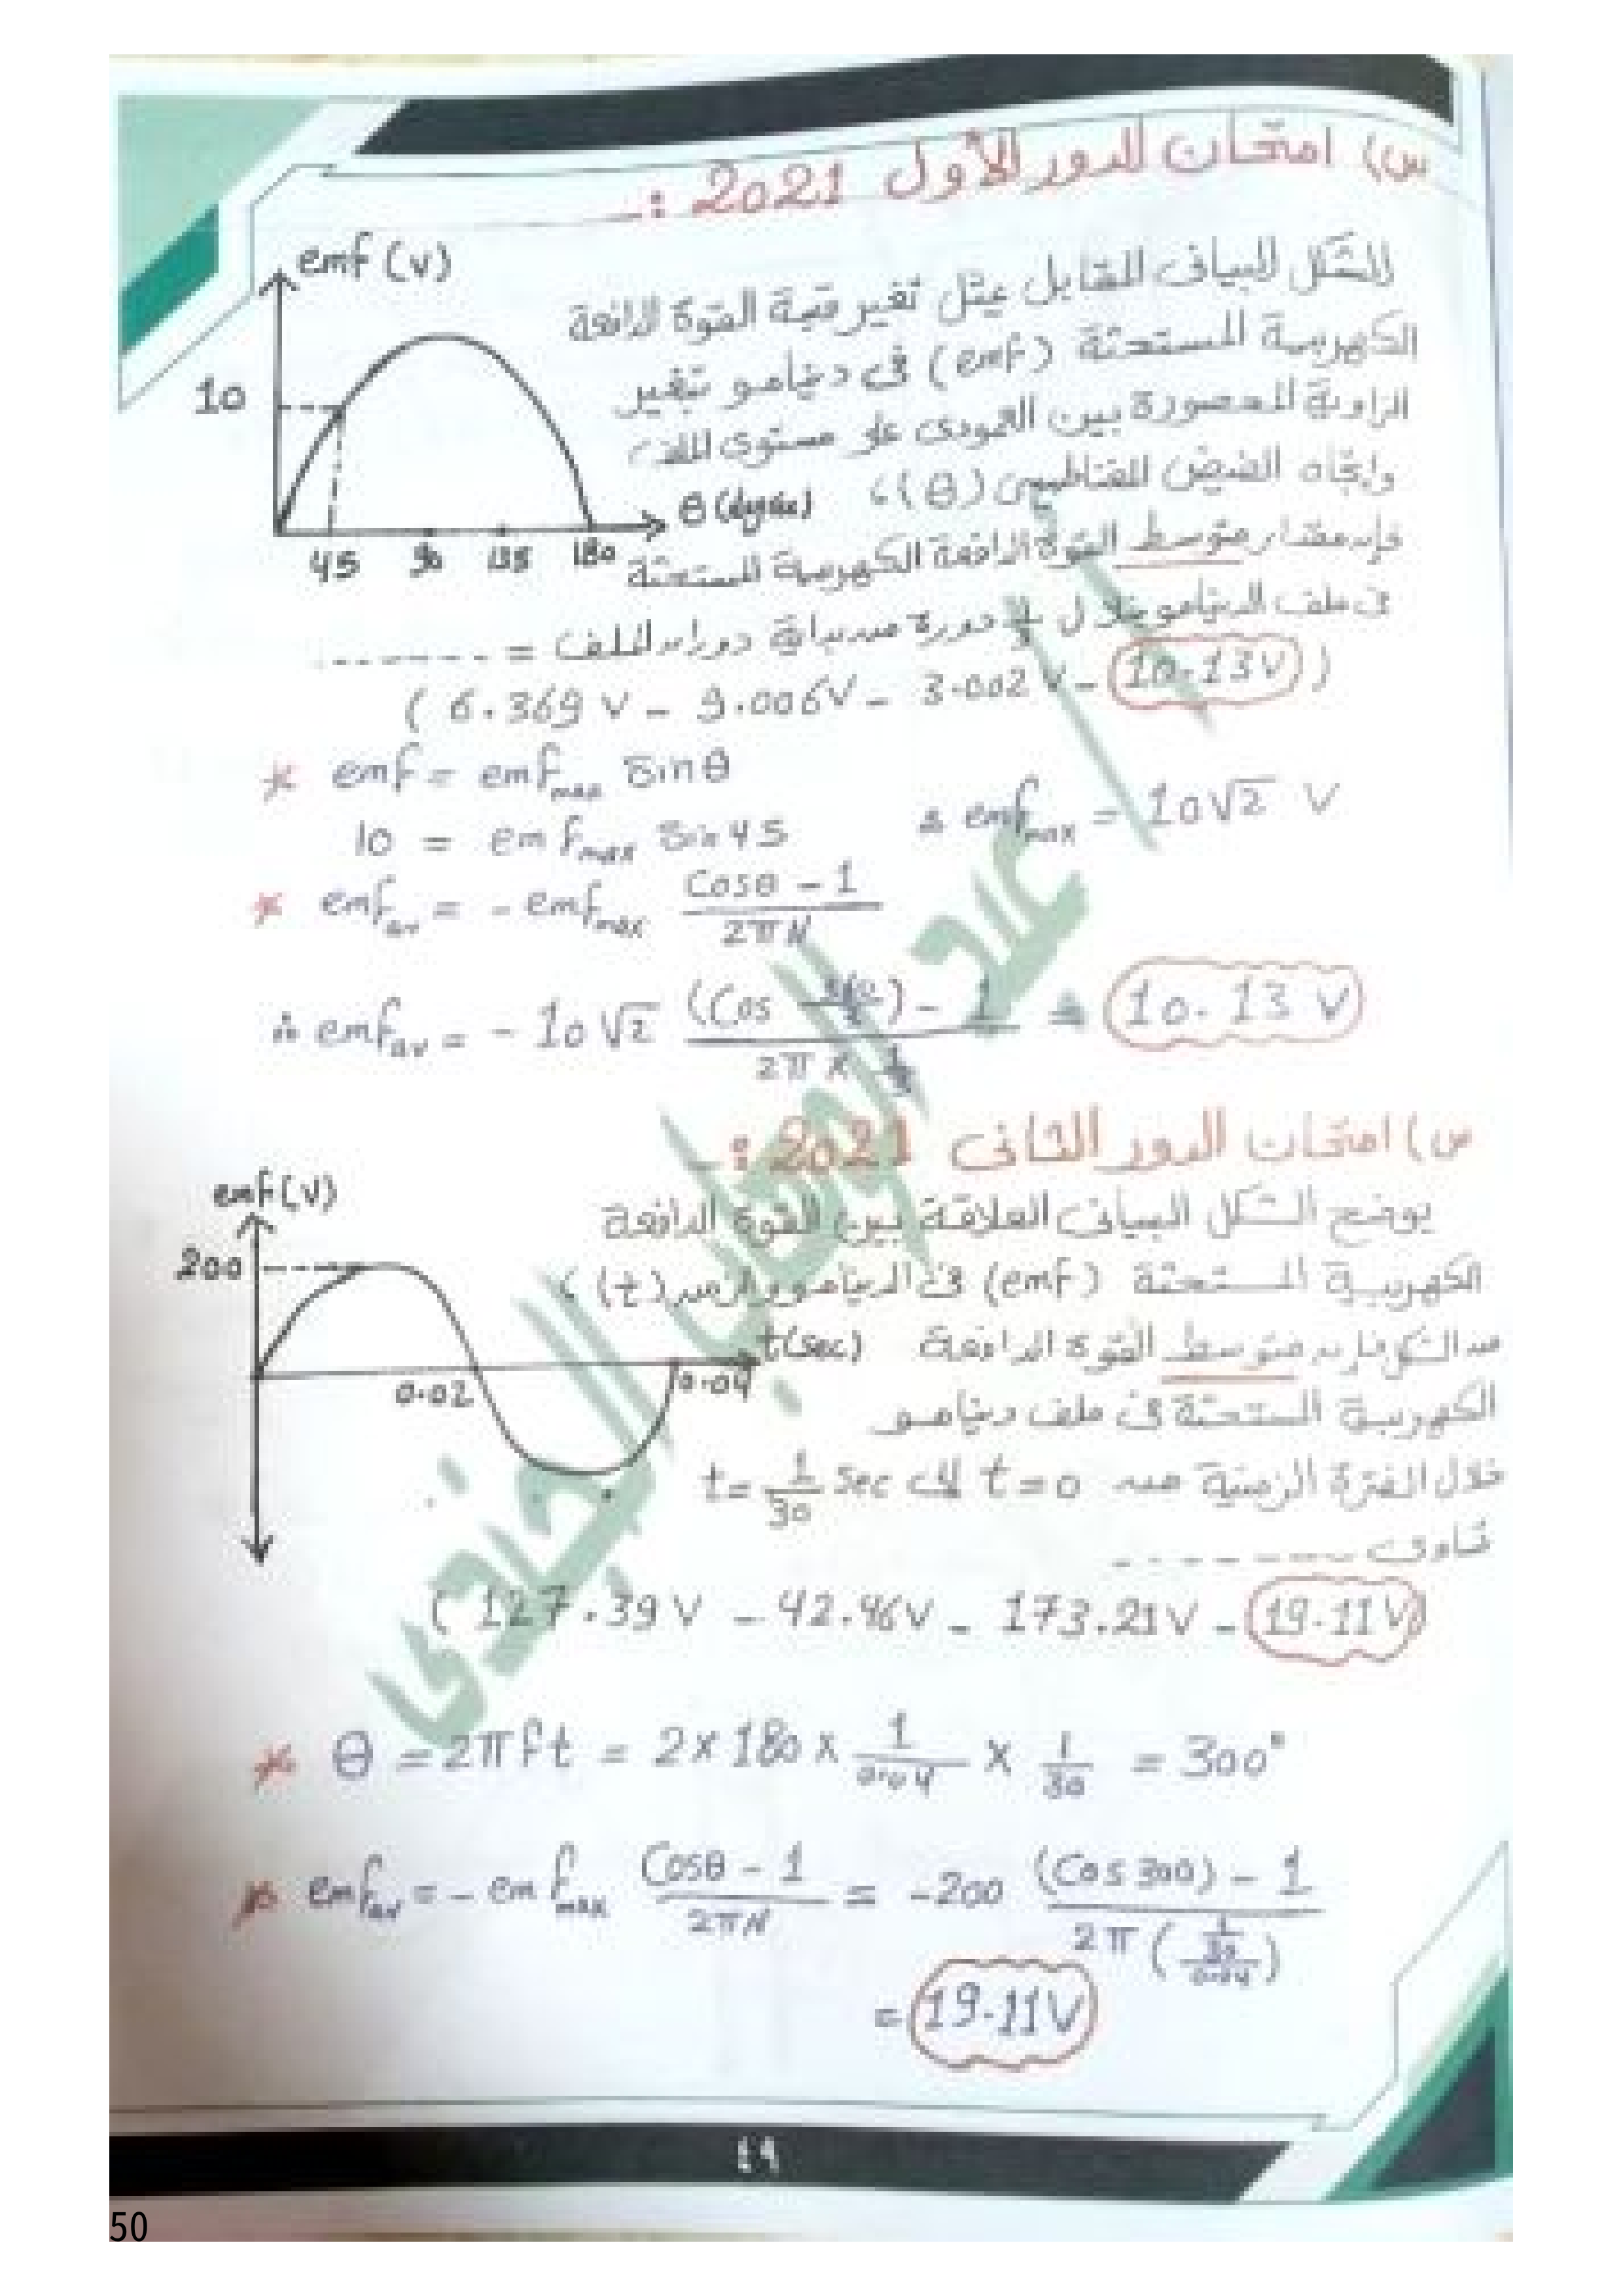 س) امتحان الدور الأول 2021 :
emf (V)
10
45 90 135 180
θ (degree)
الشكل البيانى المقابل يمثل تغير قيمة القوة الدافعة
الكهربية المستحثة (emf) فى دينامو بتغير
الزاوية المحصورة بين العمودى على مستوى الملف
واتجاه الفيض المغناطيسى (θ) ،
فإن مقدار متوسط القوة الدافعة الكهربية المستحثة
فى ملف الدينامو خلال دورة من بداية دوران الملف = -------
( 6.369 V - 9.006V - 3.002 V - 10.13V )
* emf = emf max Sin θ
10 = emf max Sin 45 ∴ emf max = 10√2 V
* emf av = - emf max (Cosθ - 1) / 2πN
∴ emf av = - 10√2 = 10.13 V
س) امتحان الدور الثانى 2021 :
emf(V)
200
0.02
0.04
t(sec)
يوضح الشكل البيانى العلاقة بين القوة الدافعة
الكهربية المستحثة (emf) فى الدينامو والزمن (t) ،
من الشكل فإن متوسط القوة الدافعة
الكهربية المستحثة فى ملف دينامو
خلال الفترة الزمنية من t = 0 إلى t = 1/30 sec
تساوى -------
( 127.39 V - 42.46V - 173.21V - 19.11V )
* θ = 2πft = 2 × 180 × 1/0.04 × 1/30 = 300°
* emf av = - emf max (Cosθ - 1) / 2πN = -200 ((Cos 300) - 1) / 2π ((1/30)/0.04)
= 19.11V
عبد الوهاب الجندى
٤٩
50